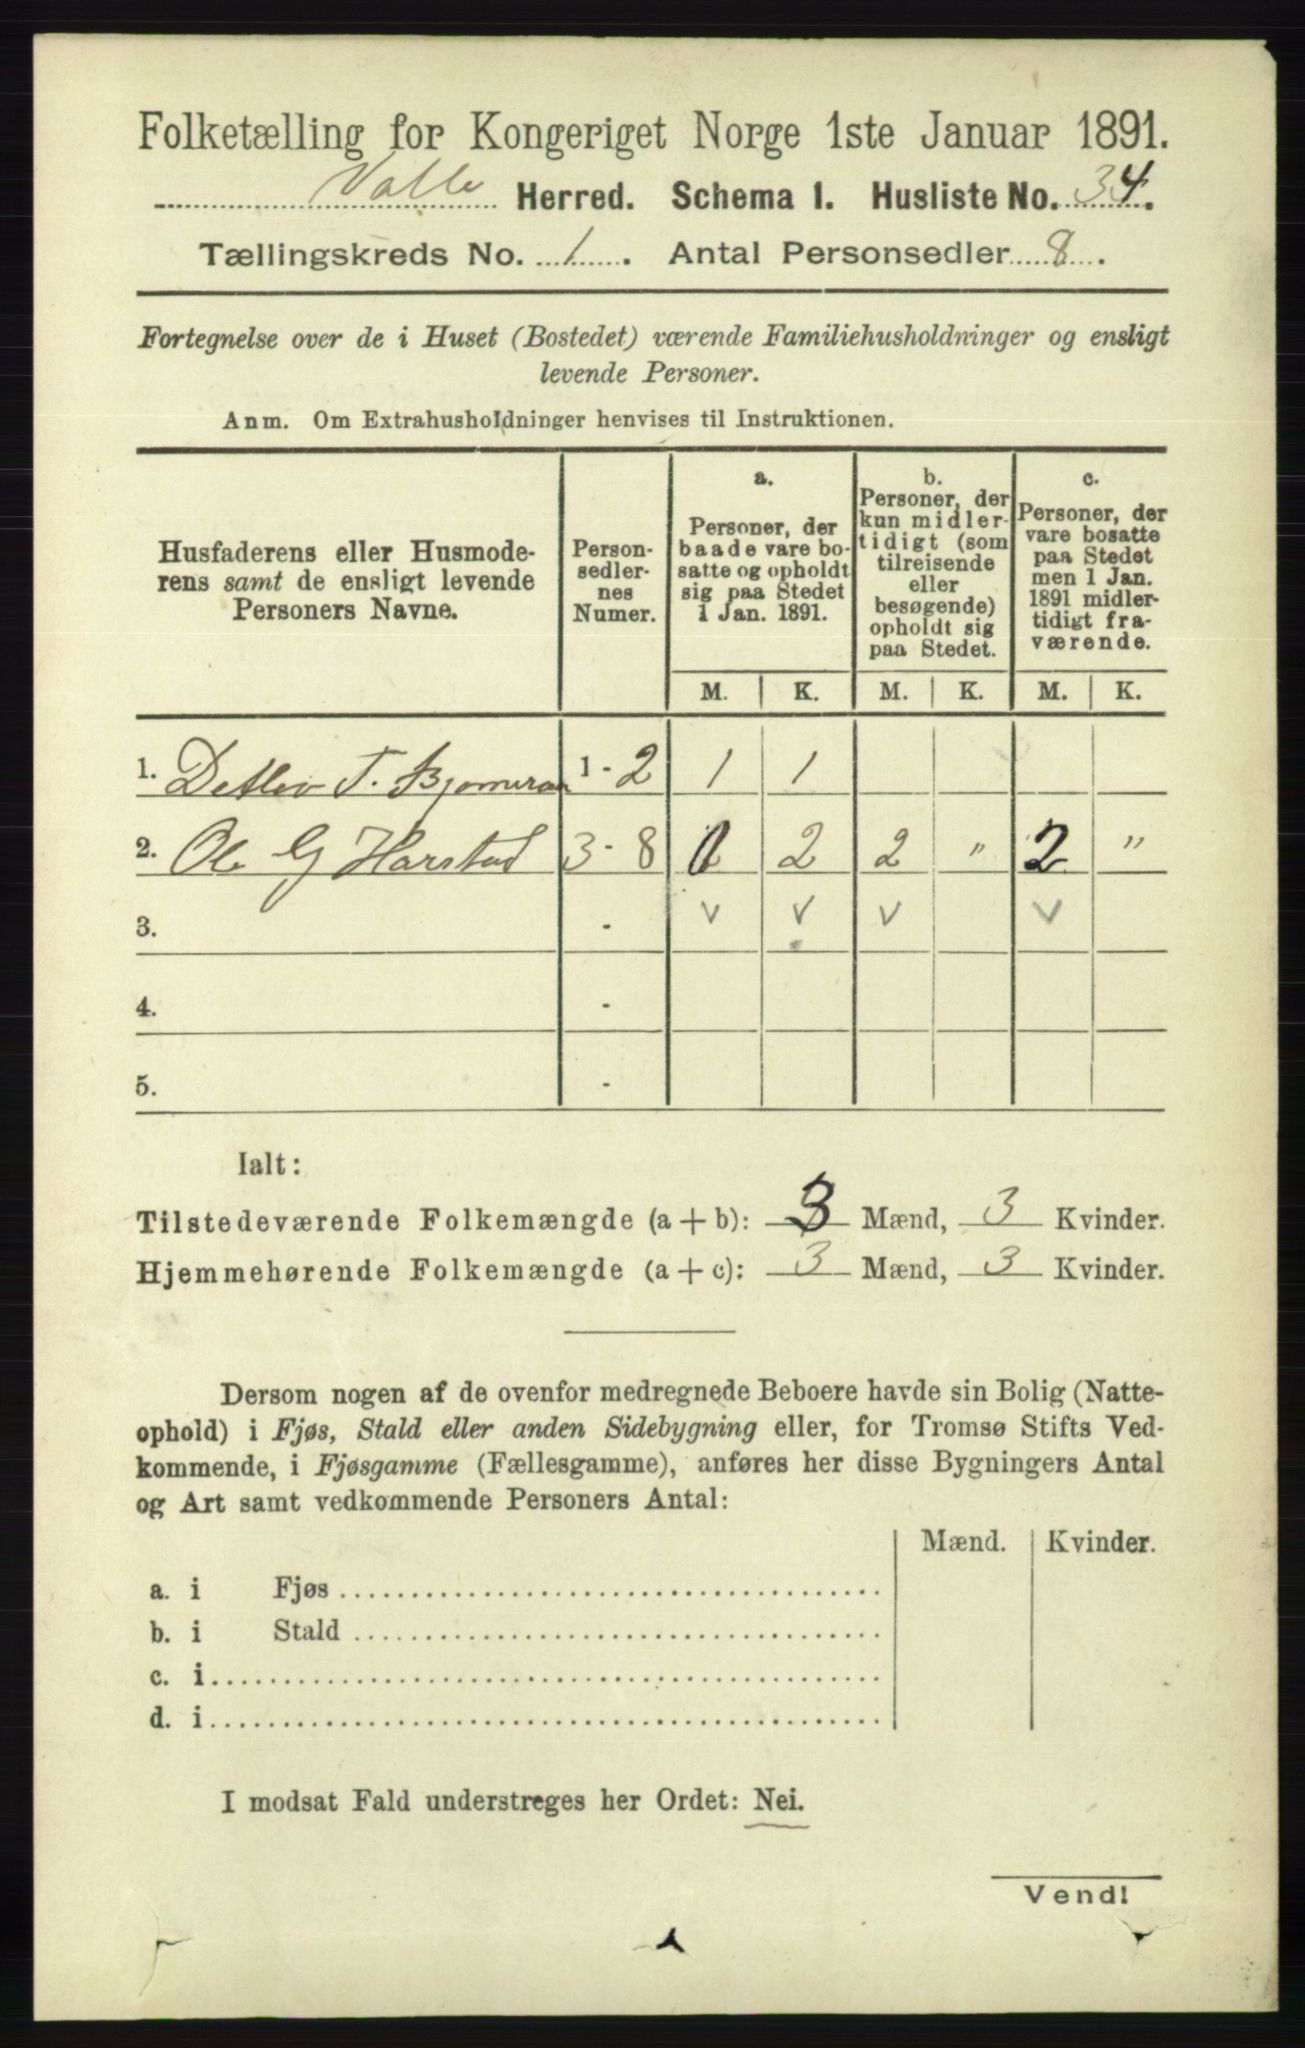 Folketælling for Kongeriget Norge 1ste Januar 1891.
Valle Herred. Schema 1. Husliste No. 34.
Tællingskreds No. 1. Antal Personsedler 8.
Fortegnelse over de i Huset (Bostedet) værende Familiehusholdninger og ensligt
levende Personer.
Anm. Om Extrahusholdninger henvises til Instruktionen.
Husfaderens eller Husmode-
rens samt de ensligt levende
Personers Navne.
Person-
sedler-
nes
Numer.
a.
Personer, der
baade vare bo-
satte og opholdt
sig paa Stedet
1 Jan. 1891.
b.
Personer, der
kun midler-
tidigt (som
tilreisende
eller
besøgende)
opholdt sig
paa Stedet.
c.
Personer, der
vare bosatte
paa Stedet
men 1 Jan.
1891 midler-
tidigt fra-
værende.
M. K. M. K. M. K.
1. Detlev T. 1 - 2 1 1
2. Ole G Harstad 3 - 8 0 2 2 " 2 "
3. - v v v v
4. -
5. -
Ialt:
Tilstedeværende Folkemængde (a + b): 3 Mænd, 3 Kvinder.
Hjemmehørende Folkemængde (a + c): 3 Mænd, 3 Kvinder.
Dersom nogen af de ovenfor medregnede Beboere havde sin Bolig (Natte-
ophold) i Fjøs, Stald eller anden Sidebygning eller, for Tromsø Stifts Ved-
kommende, i Fjøsgamme (Fællesgamme), anføres her disse Bygningers Antal
og Art samt vedkommende Personers Antal:
Mænd. Kvinder.
a. i Fjøs
b. i Stald
c. i
d. i
I modsat Fald understreges her Ordet: Nei.
Vend!